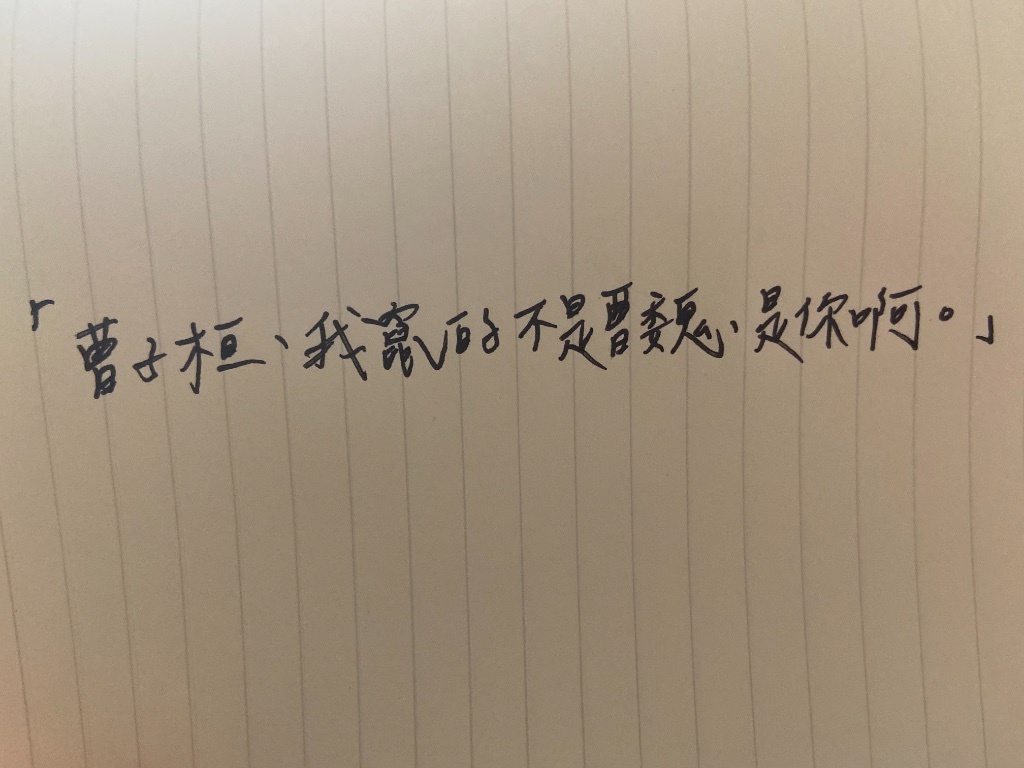 「曹子桓、我竄的不是曹魏、是你啊。」